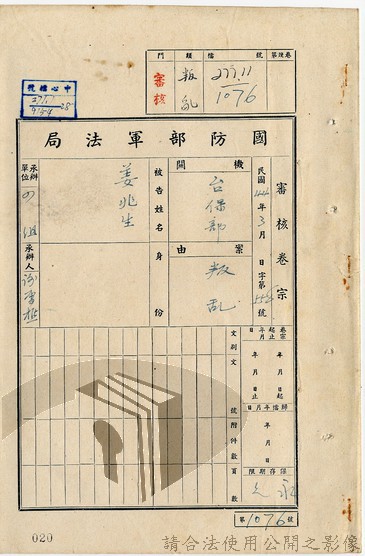 門類 檔號 第幾卷
審核 叛亂 277.11
1076
中心檔號
277.11
28
局法軍部防國
審核卷宗
民國44年3月 日 字第 號
機關
台保部
案由
叛乱
被告姓名
姜兆生
身份
承辦單位
四組
承辦人
卷宗起止年月日
年月日起
年月日止
歸檔年月日
年月日
保存期限
永久
文別文號附件數頁數
第1076號
020
請合法使用公開之影像